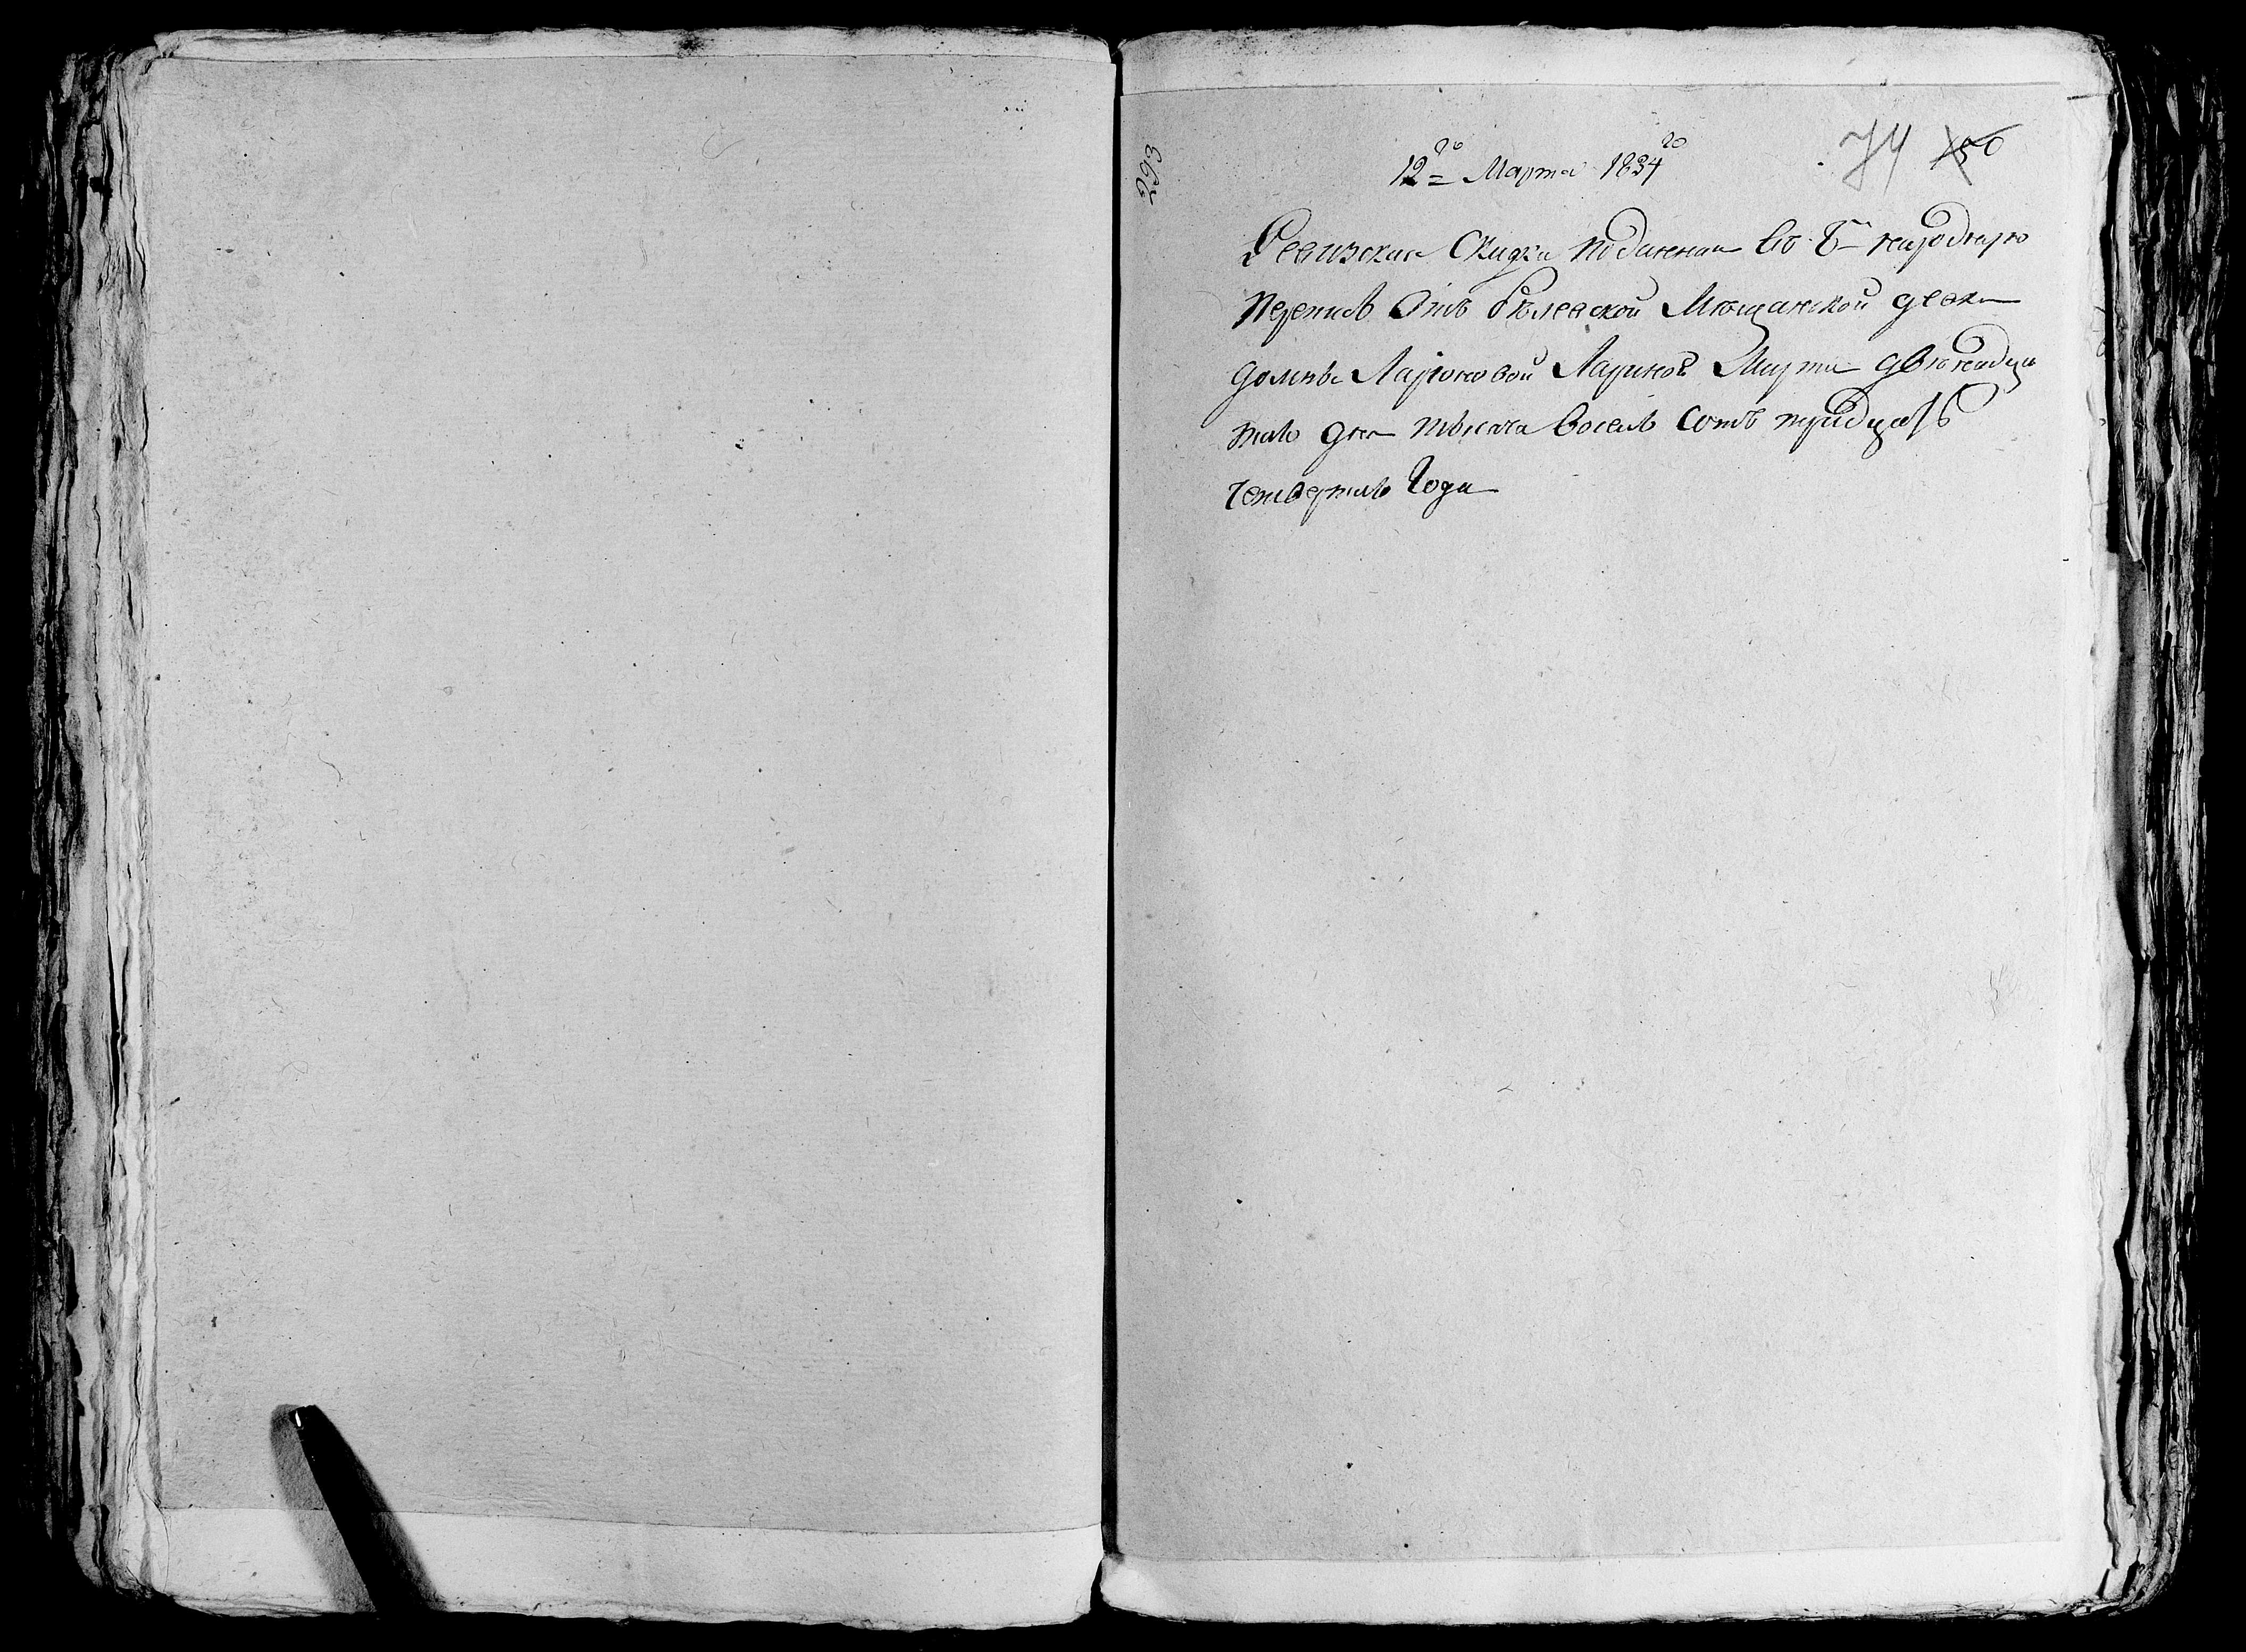 293
12го Марта 1834го 74 150
Ревизская Скаска поданная во 8ю народную
перепись Отъ Белевской Мещанской девки
домны Ларионовой Лариной Марта двенадца
таго дня тысяча восемь сотъ тридцать
четвертаго года